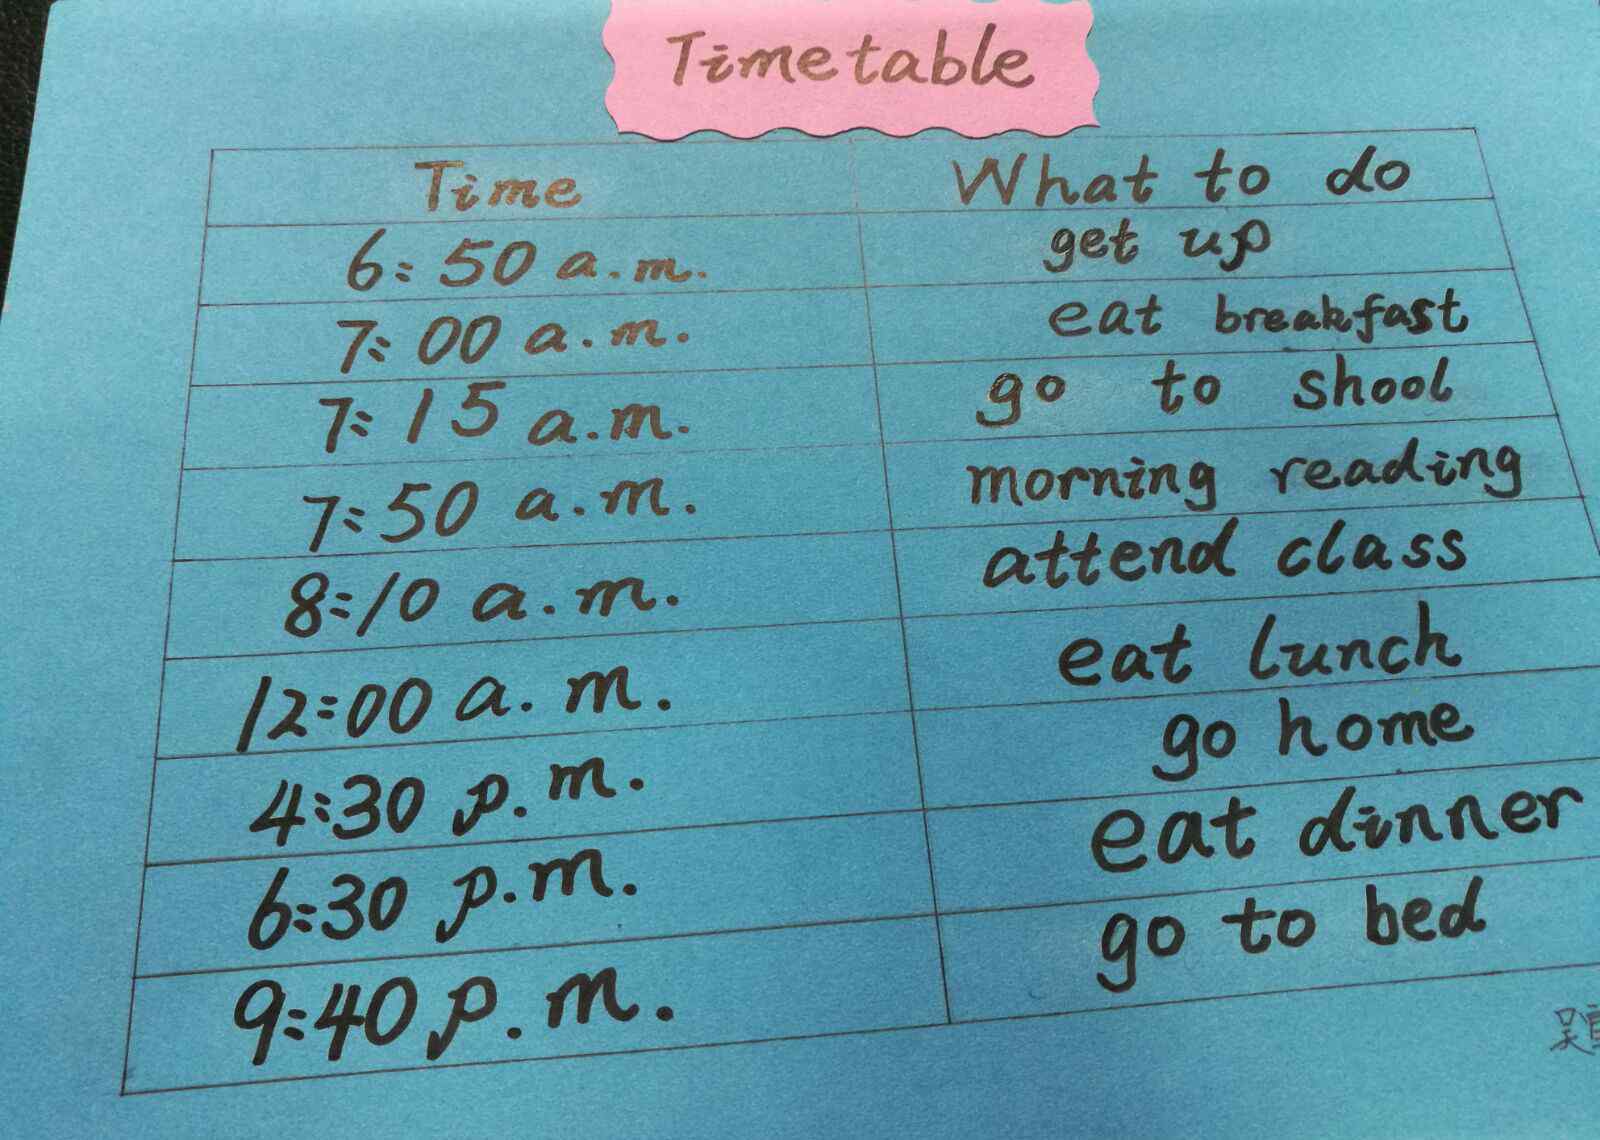 Timetable
Time What to do
6:50 a.m. get up
7:00 a.m. eat breakfast
7:15 a.m. go to shool
7:50 a.m. morning reading
8:10 a.m. attend class
12:00 a.m. eat lunch
4:30 p.m. go home
6:30 p.m. eat dinner
9:40 p.m. go to bed
吴